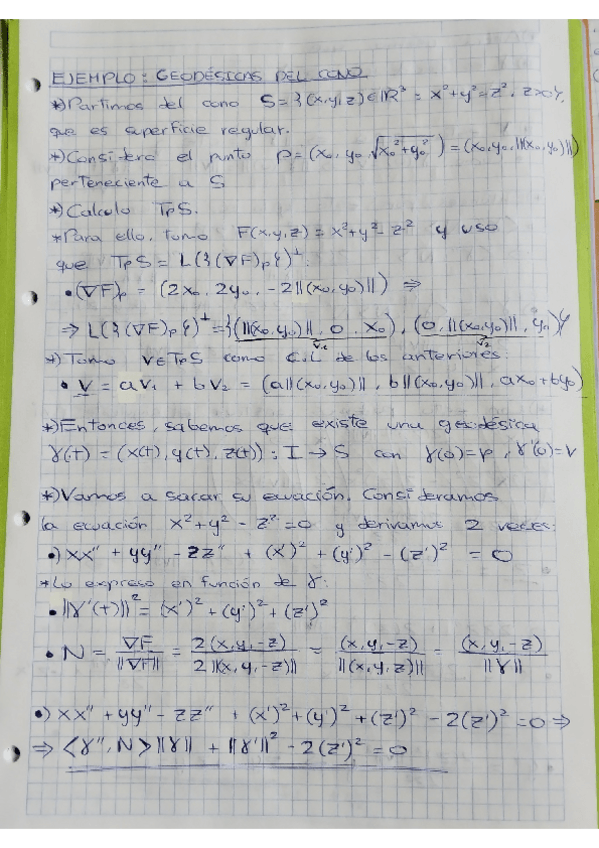 EJEMPLO: GEODÉSICAS DEL CONO
*) Partimos del cono S = {(x,y,z) ∈ ℝ³ = x²+y²=z², z>0},
que es superficie regular.
*) Considero el punto p = (x₀, y₀, √(x₀²+y₀²)) = (x₀, y₀, ||(x₀,y₀)||)
perteneciente a S
*) Calculo TpS.
*Para ello, tomo F(x,y,z) = x²+y²-z² y uso
que TpS = L({(∇F)p})^⊥:
• (∇F)p = (2x₀, 2y₀, -2||(x₀,y₀)||) ⇒
⇒ L({(∇F)p})^⊥ = {(||(x₀,y₀)||, 0, x₀), (0, ||(x₀,y₀)||, y₀)}
v₁ v₂
*) Tomo v∈TpS como C.L de los anteriores:
• v = av₁ + bv₂ = (a||(x₀,y₀)||, b||(x₀,y₀)||, ax₀+by₀)
*) Entonces, sabemos que existe una geodésica
γ(t) = (x(t), y(t), z(t)) : I → S con γ(0)=p, γ'(0)=v
*) Vamos a sacar su ecuación. Consideramos
la ecuación x²+y²-z²=0 y derivamos 2 veces:
•) xx'' + yy'' - zz'' + (x')² + (y')² - (z')² = 0
*Lo expreso en función de γ:
• ||γ'(t)||² = (x')² + (y')² + (z')²
• N = ∇F/||∇F|| = 2(x,y,-z)/2||(x,y,-z)|| = (x,y,-z)/||(x,y,z)|| = (x,y,-z)/||γ||
•) xx'' + yy'' - zz'' + (x')² + (y')² + (z')² - 2(z')² = 0 ⇒
⇒ <γ'', N>||γ|| + ||γ'||² - 2(z')² = 0